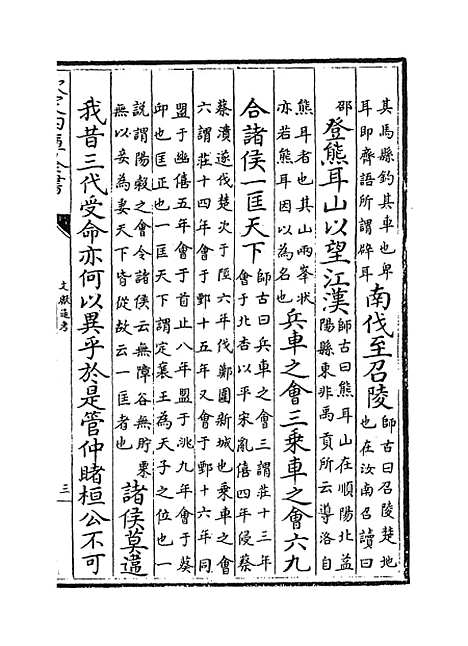 其馬縣鈎其車也卑
耳即齊語所謂辟耳
南伐至召陵
師古曰召陵楚地
也在汝南召讀曰
邵
登熊耳山以望江漢
師古曰熊耳山在順陽北益
陽縣東非禹貢所云導洛自
熊耳者也其山兩峯狀
亦若熊耳因以為名也
兵車之會三乘車之會六九
合諸侯一匡天下
師古曰兵車之會三謂莊十三年
會于北杏以平宋亂僖四年侵蔡
蔡潰遂伐楚次于陘六年伐鄭圍新城也乘車之會
六謂莊十四年會于鄄十五年又會于鄄十六年同
盟于幽僖五年會于首止八年盟于洮九年會于葵
邱也匡正也一匡天下謂定襄王為天子之位也一
說謂陽榖之會令諸侯云無障谷無貯粟
無以妾為妻天下皆從故云一匡者也
諸侯莫違
我昔三代受命亦何以異乎於是管仲睹桓公不可
文獻通考
三